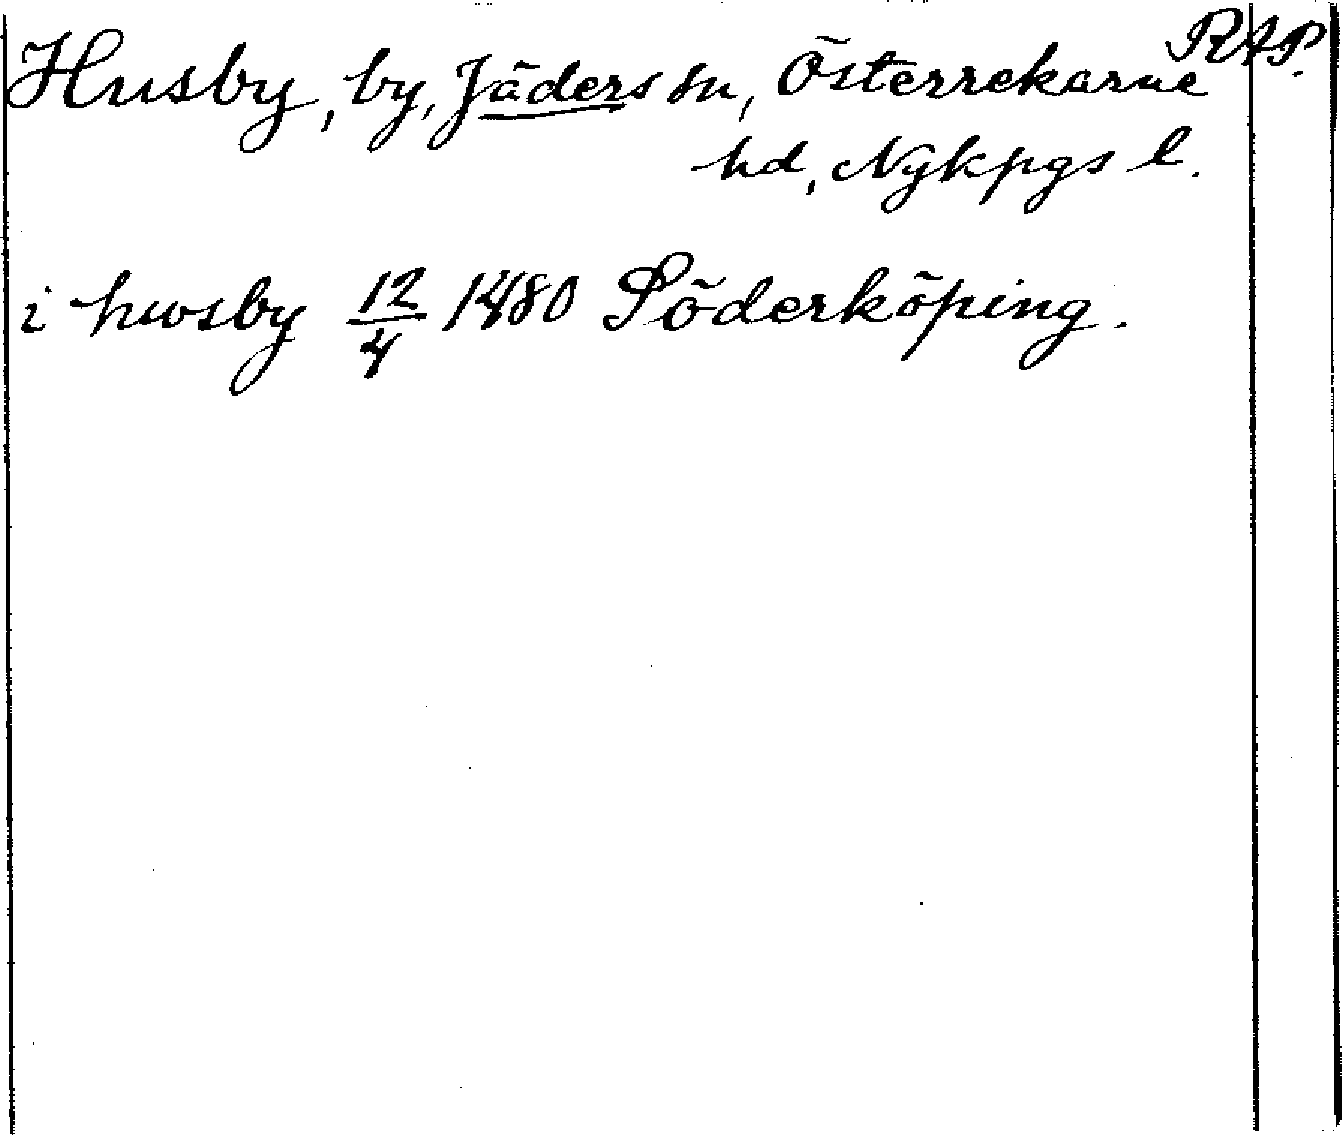 RAP.
Husby, by, Jäders sn, Österrekarne
hd, Nykpgs l.
i hwsby 12/4 1480 Söderköping.